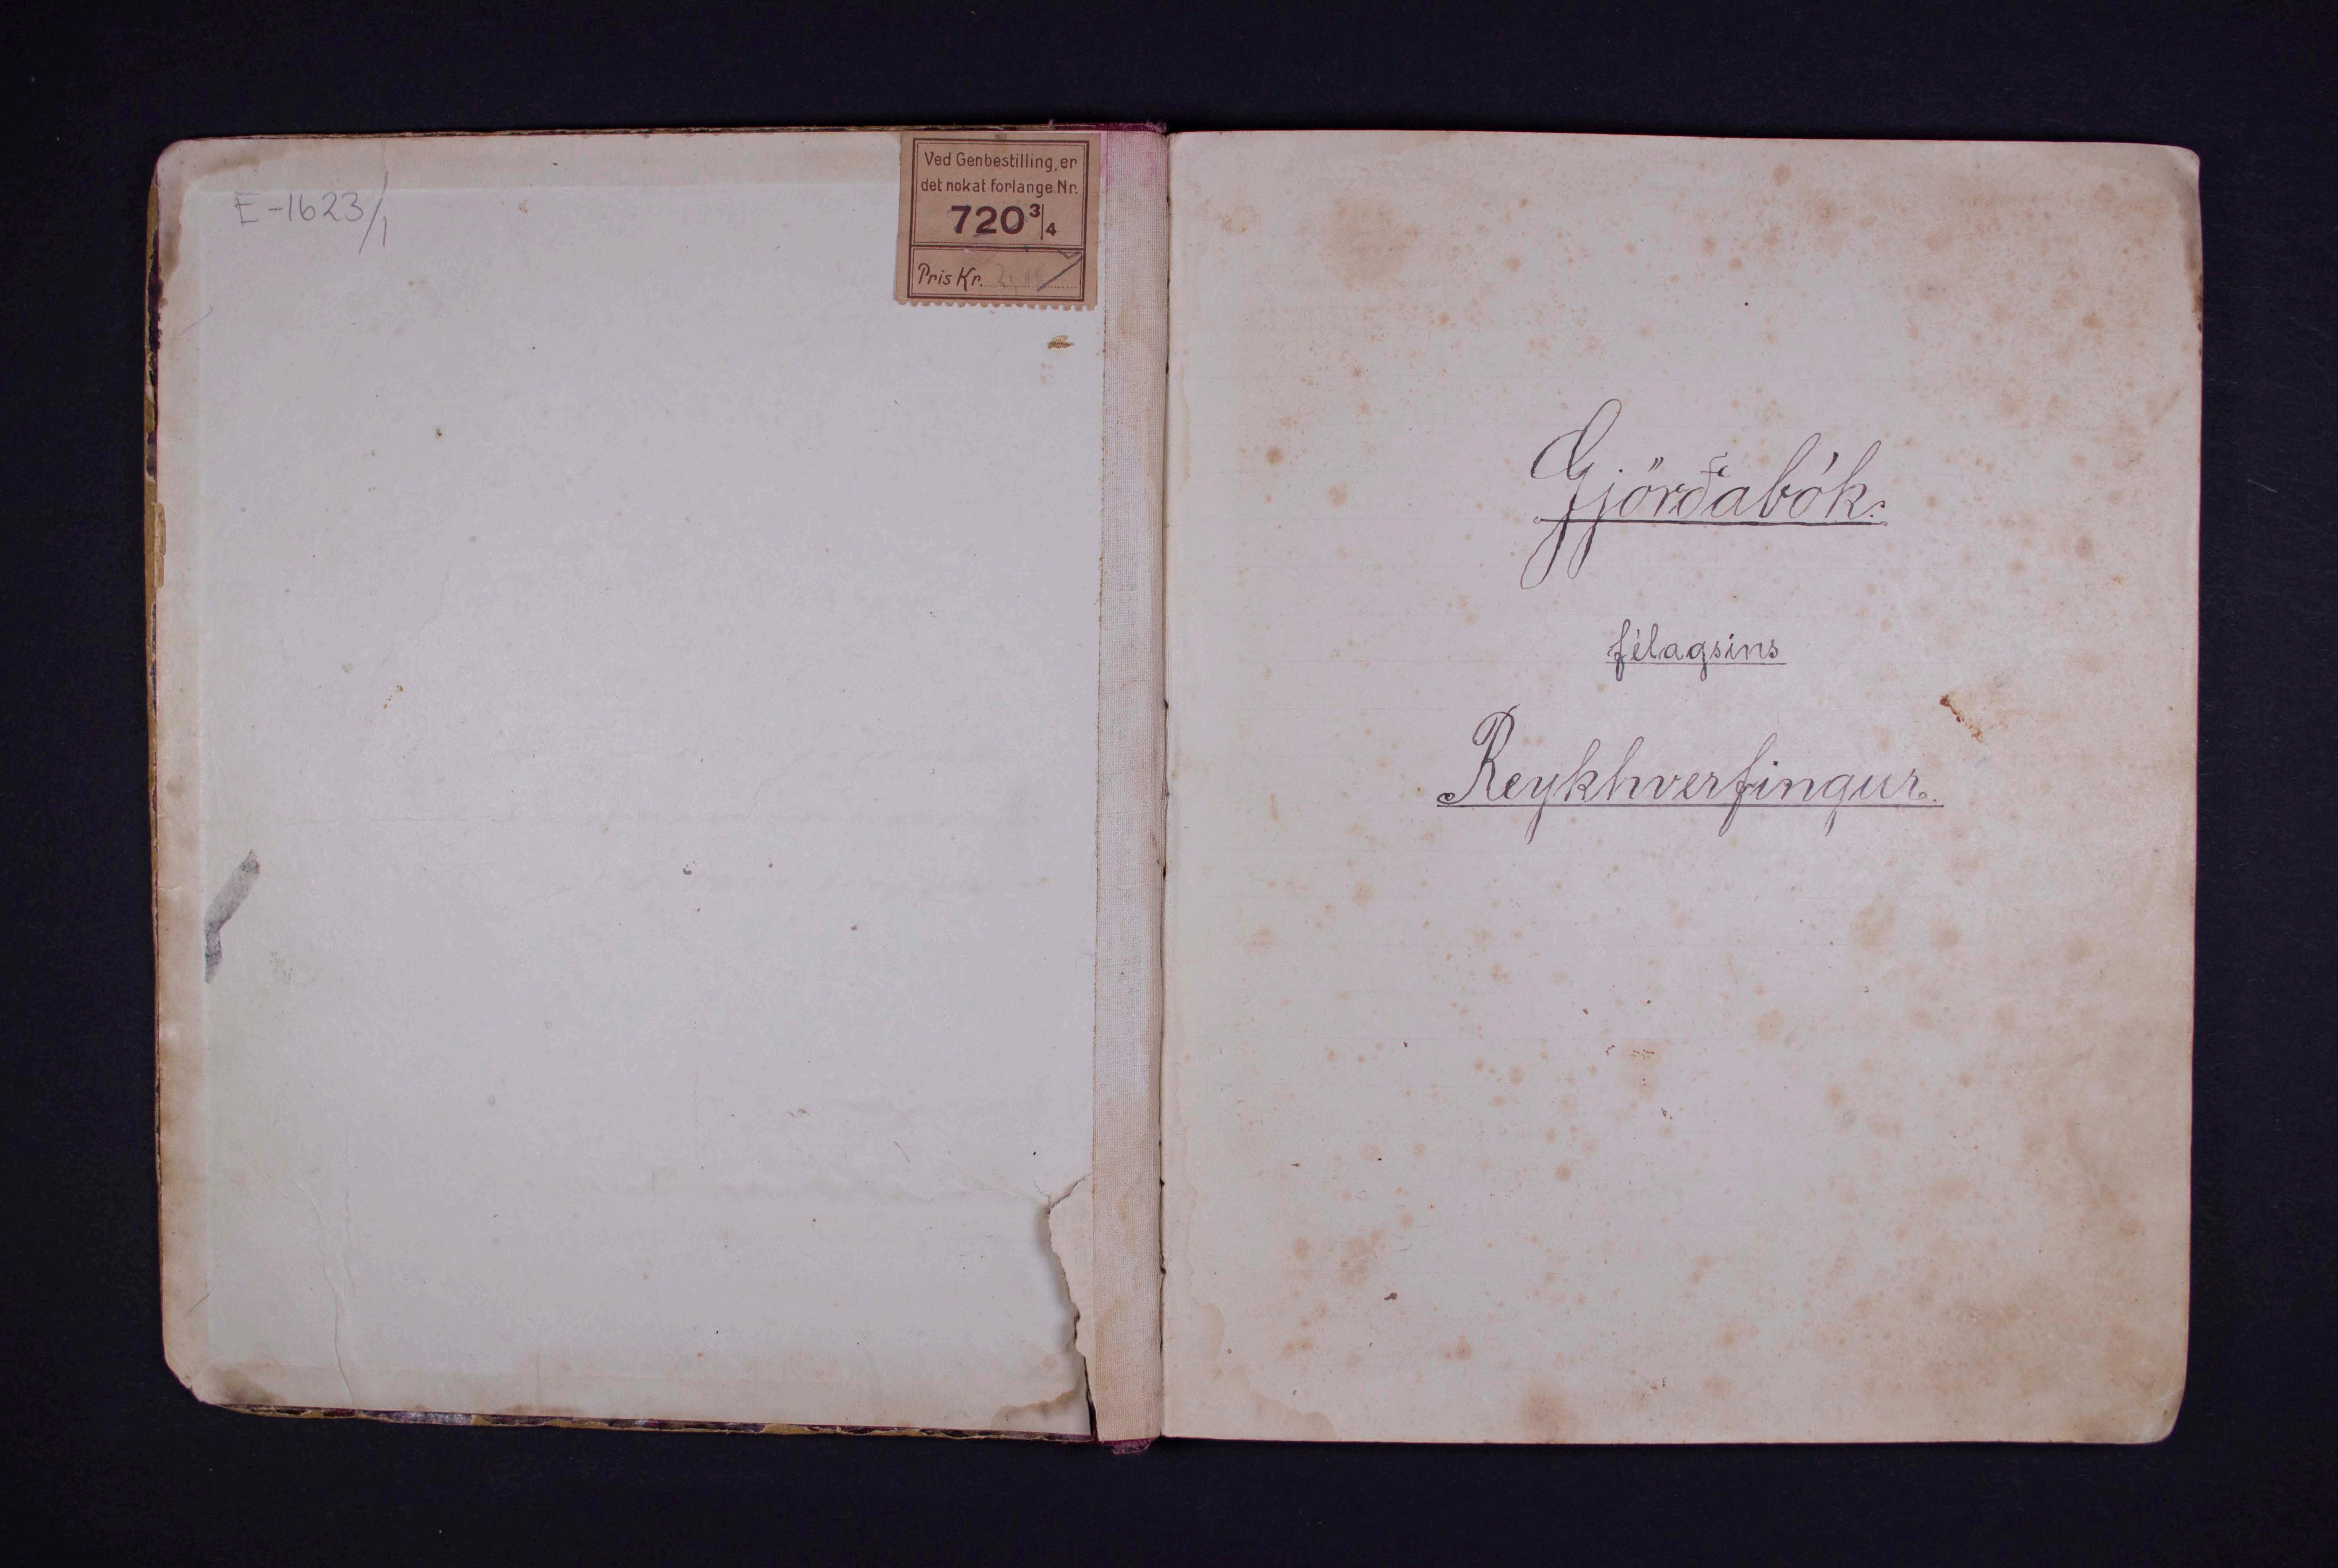 E-1623/1
Ved Genbestilling, er
det nok at forlange Nr.
720 3/4
Pris Kr.
Gjörðabók.
félagsins
Reykhverfingur.